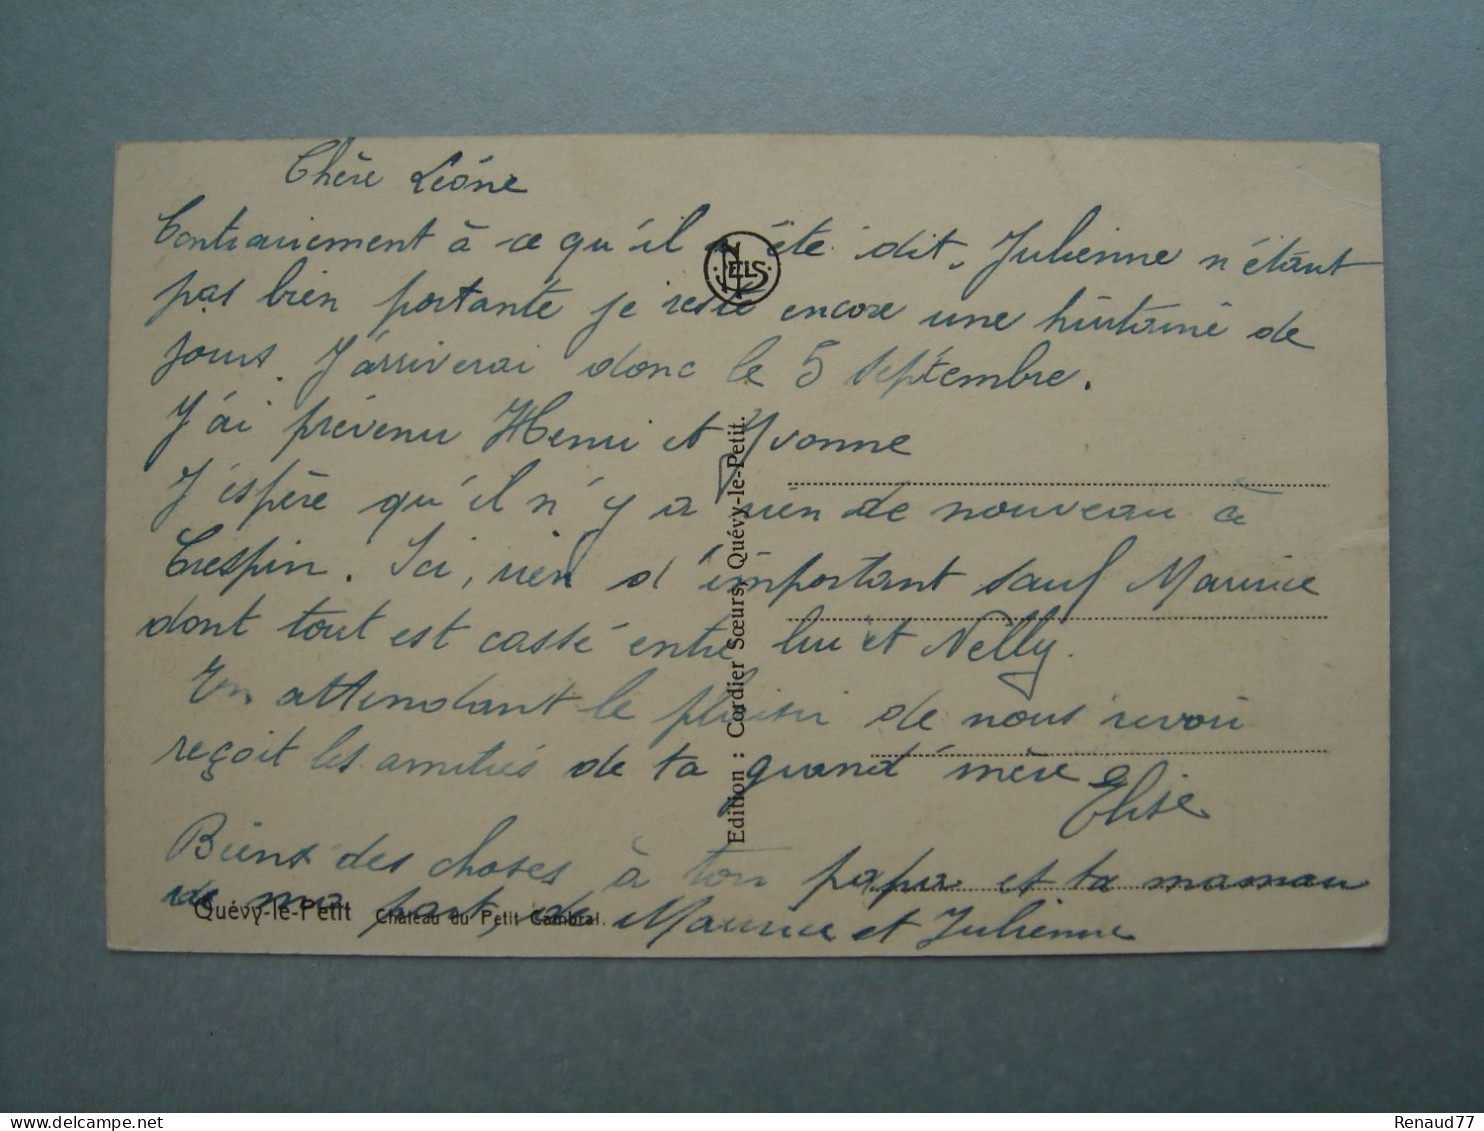 Chère Léone
Contrairement à ce qu'il a été dit, Julienne n'étant
pas bien portante je reste encore une huitaine de
jours. J'arriverai donc le 5 septembre.
J'ai prévenu Henri et Yvonne
J'espère qu'il n'y a rien de nouveau à
Crespin. Ici, rien d'important sauf Maurice
dont tout est cassé entre lui et Nelly.
En attendant le plaisir de nous revoir
reçoit les amitiés de ta grand'mère
Elise
Biens des choses à ton papa et ta maman
de ma part, de Maurice et Julienne
NELS
Edition : Cordier Sœurs, Quévy-le-Petit.
Quévy-le-Petit Château du Petit Cambrai.
delcampe.net
Renaud77